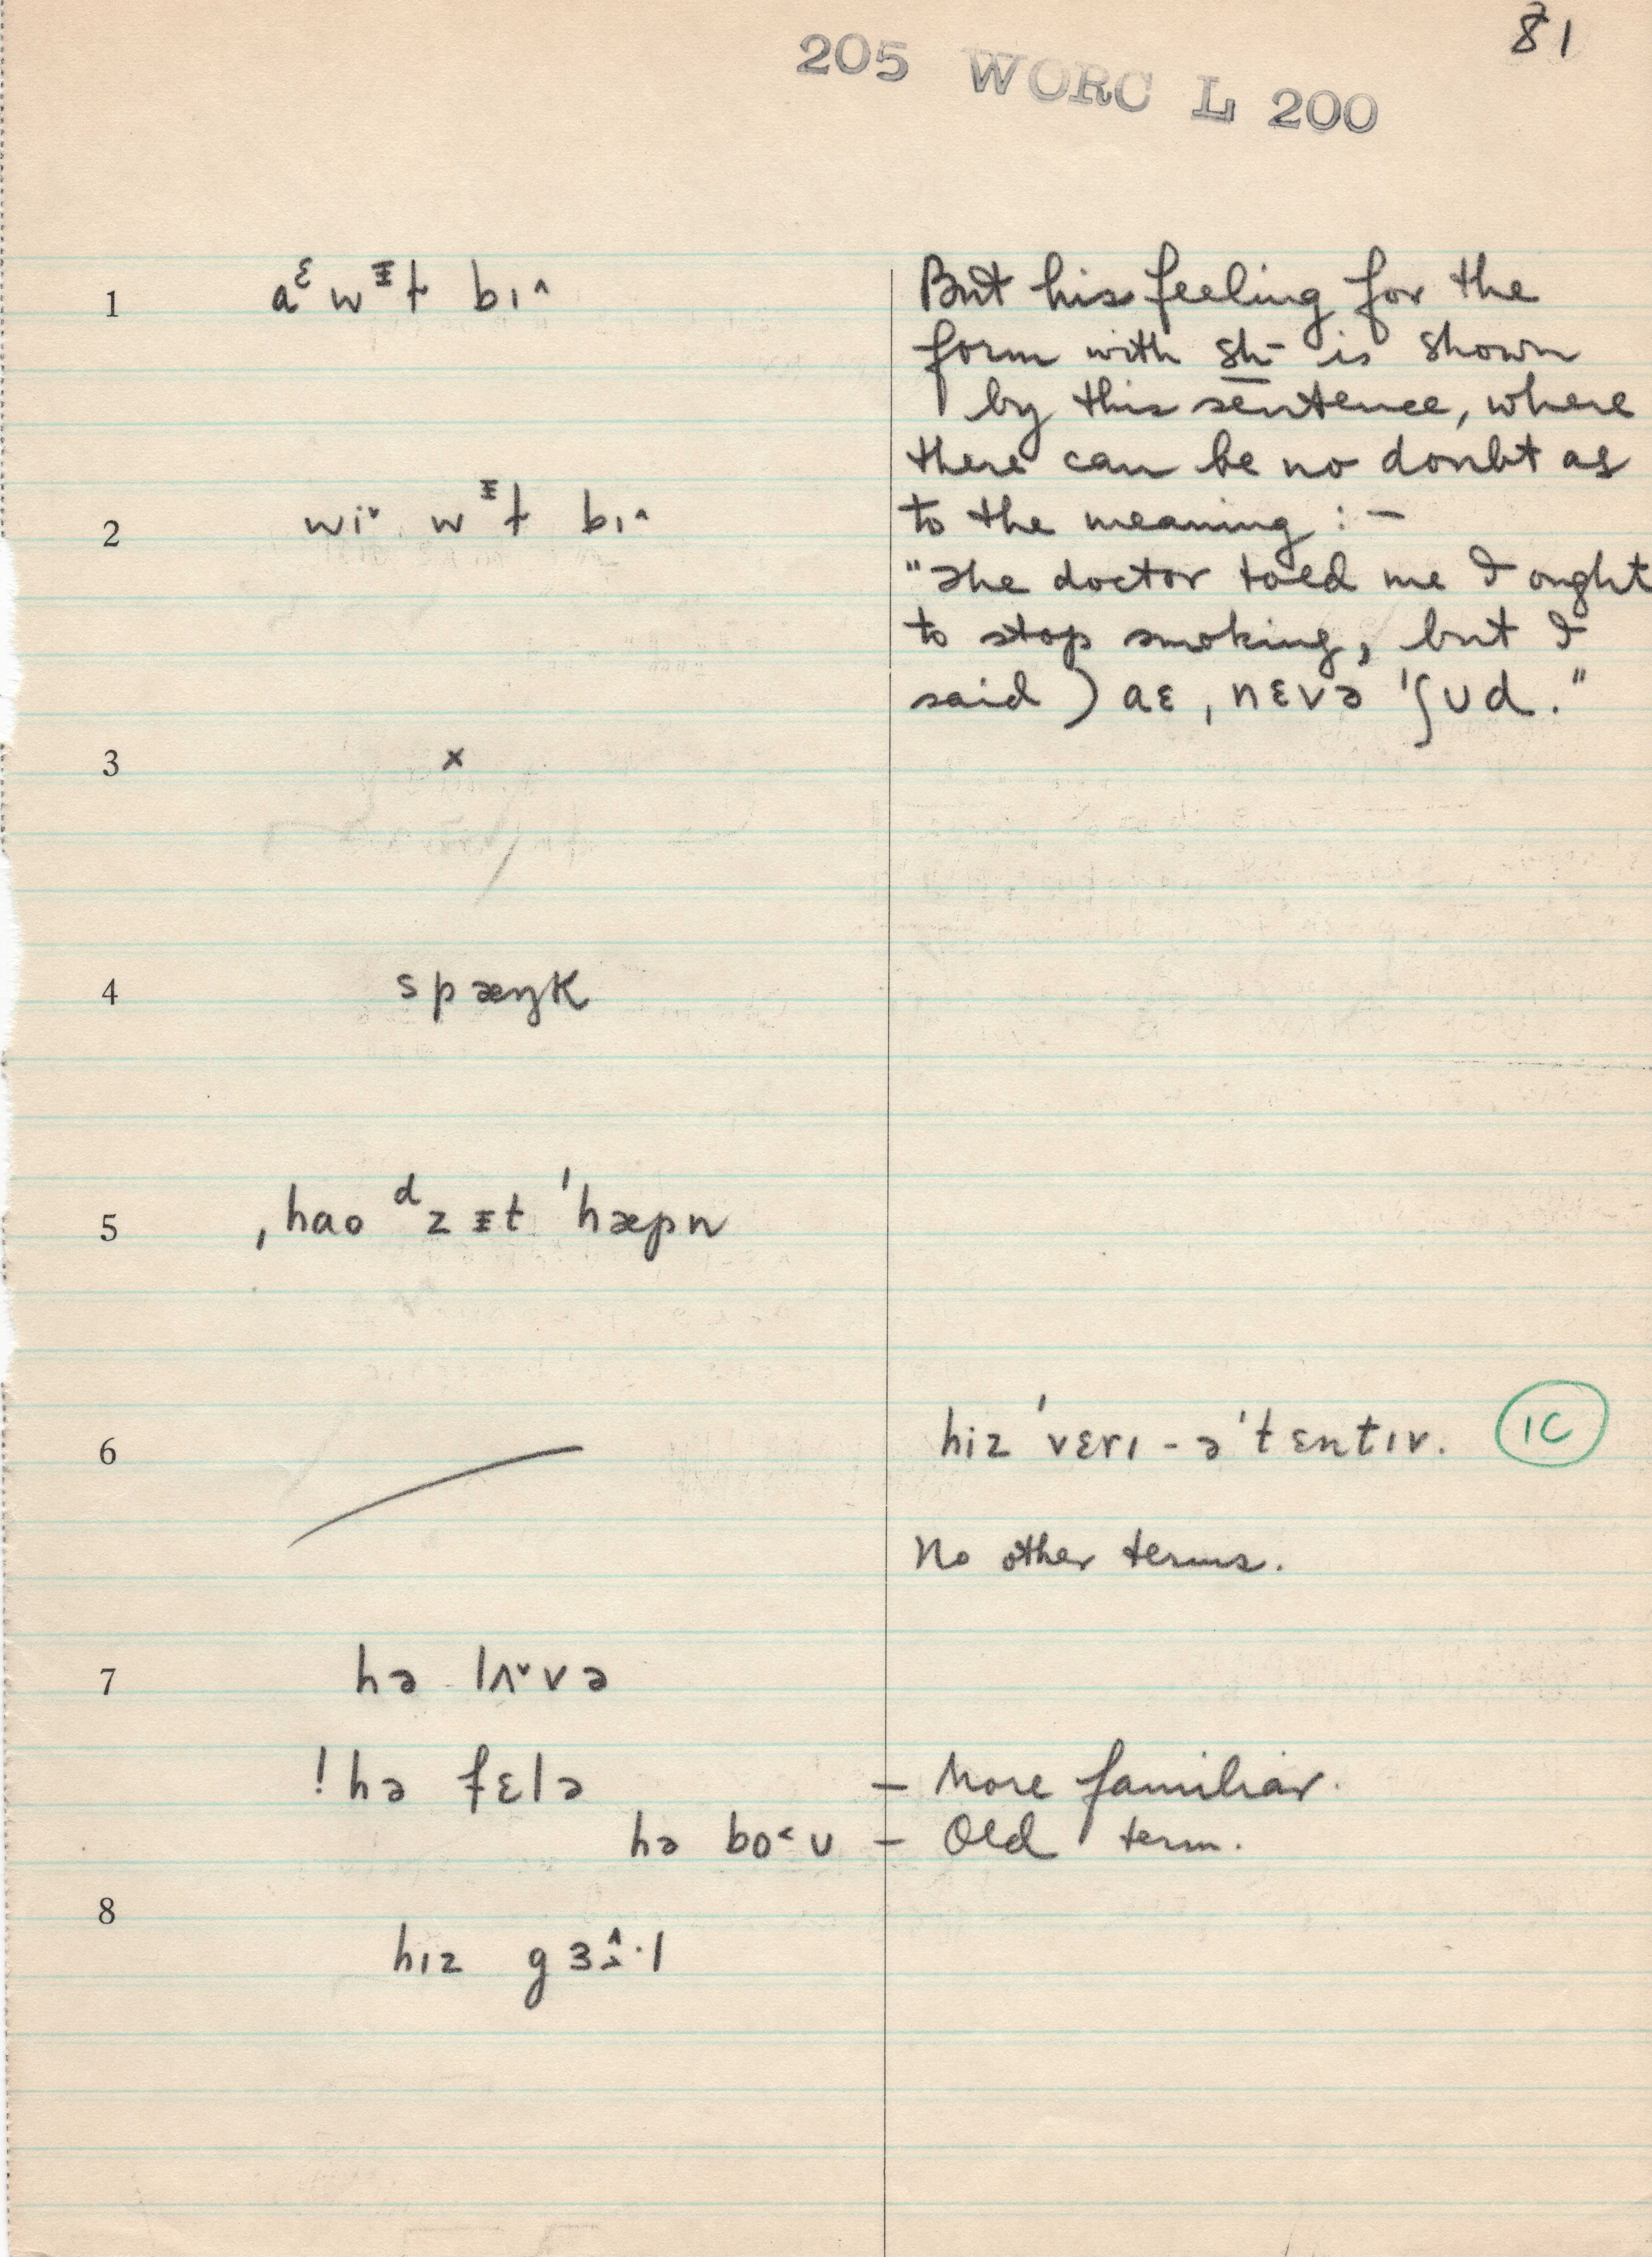 81
205 WORC L 200
1 aᵋ wᵻɫ bɪ^
But his feeling for the
form with sh- is shown
by this sentence, where
there can be no doubt as
to the meaning : –
2 wi˅ wᵻɫ bɪ^
"The doctor told me I ought
to stop smoking, but I
said) aɛ ˌnɛvə ˈʃʊd."
3 ×
4 spæŋk
5 ˌhao ᵈzᵻt ˈhæpn
6 hiz ˈvɛrɪ - əˈtɛntɪv. IC
No other terms.
7 hə lʌ˅və
! hə fɛlə – More familiar.
hə bo˂ʊ – Old term.
8
hɪz gɜ^·l